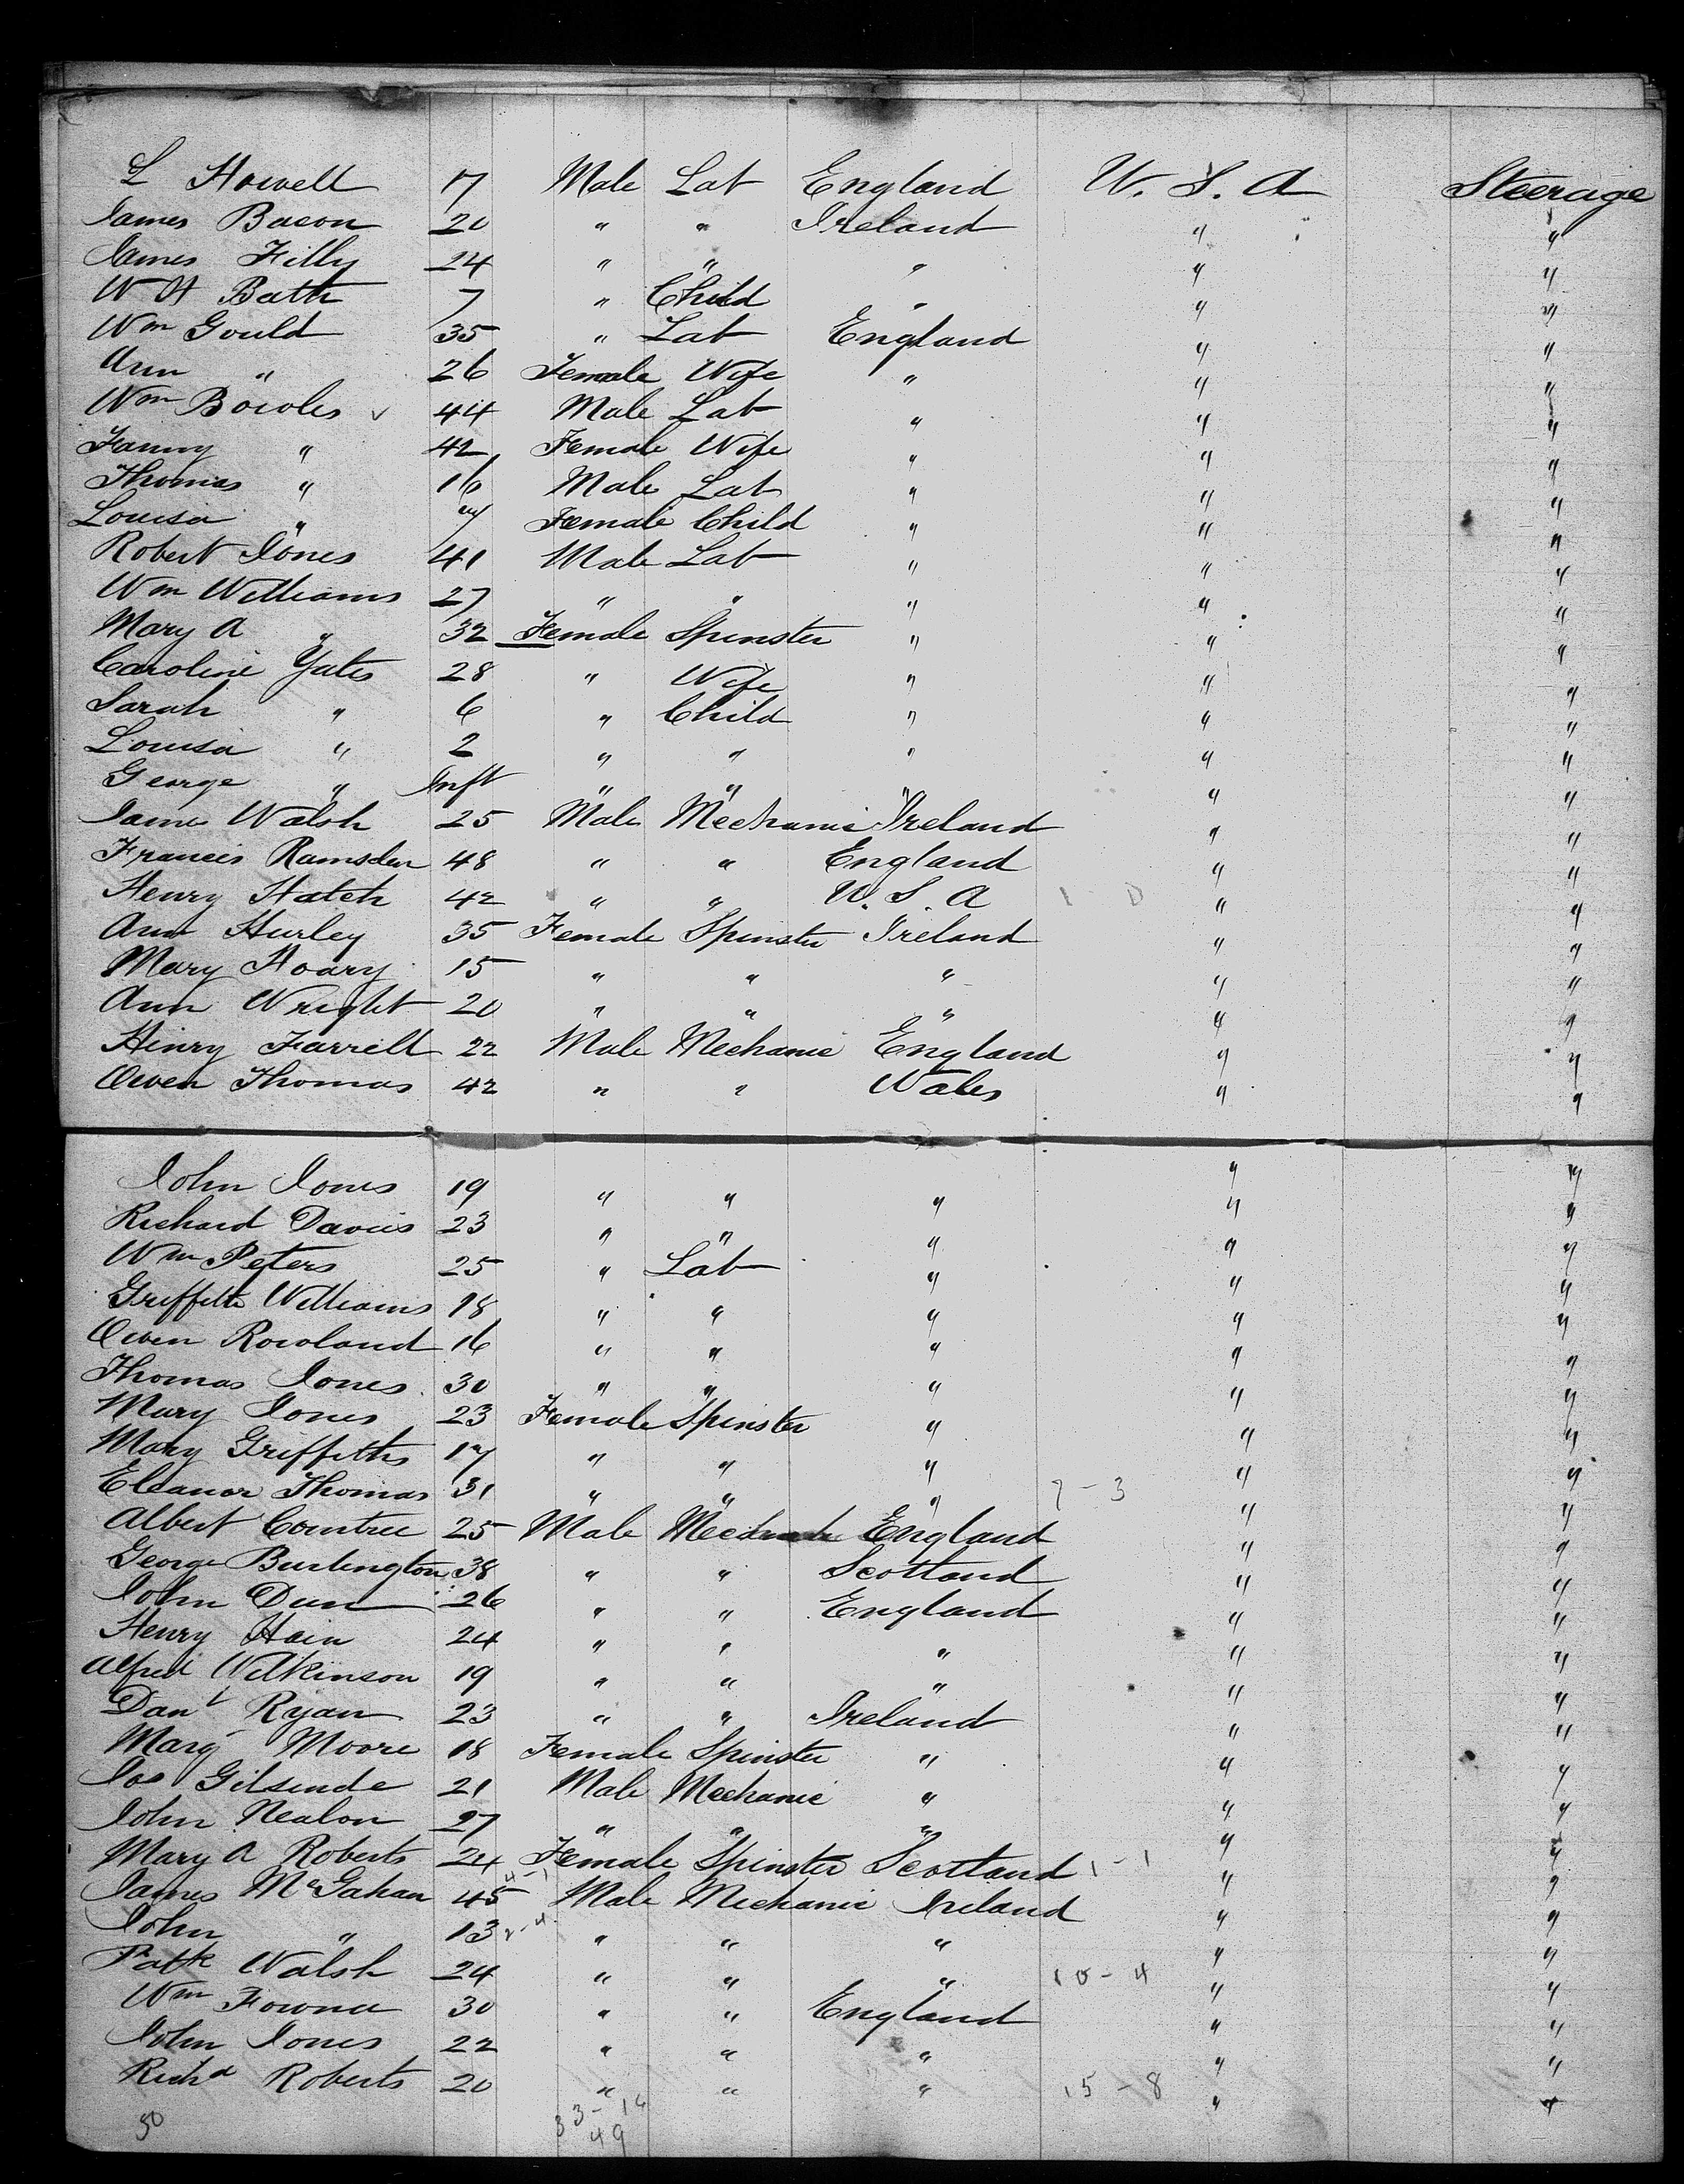 L Howell 17 Male Lab England U. S. A Steerage
James Bacon 20 " " Ireland " "
James Filly 24 " " " " "
W H Bath 7 " Child " " "
Wm Gould 35 " Lab England " "
Ann " 26 Female Wife " " "
Wm Bowles 44 Male Lab " " "
Fanny " 42 Female Wife " " "
Thomas " 16 Male Lab " " "
Louisa " 7 Female Child " " "
Robert Jones 41 Male Lab " " "
Wm Williams 27 " " " " "
Mary A " 32 Female Spinster " " "
Caroline Yates 28 " Wife " " "
Sarah " 6 " Child " " "
Louisa " 2 " " " " "
George " Inft " " " " "
James Walsh 25 Male Mechanic Ireland " "
Francis Ramsden 48 " " England " "
Henry Hatch 42 " " U. S. A " "
Ann Hurley 35 Female Spinster Ireland " "
Mary Hoary 15 " " " " "
Ann Wright 20 " " " " "
Henry Farrell 22 Male Mechanic England " "
Owen Thomas 42 " " Wales " "
John Jones 19 " " " " "
Richard Davies 23 " " " " "
Wm Peters 25 " Lab " " "
Griffith Williams 18 " " " " "
Owen Rowland 16 " " " " "
Thomas Jones 30 " " " " "
Mary Jones 23 Female Spinster " " "
Mary Griffiths 17 " " " " "
Eleanor Thomas 31 " " " 7-3 " "
Albert 25 Male England " "
George Burlington 38 " " Scotland " "
John Dun 26 " " England " "
Henry Hain 24 " " " " "
Alfred Wilkinson 19 " " " " "
Danl Ryan 23 " " Ireland " "
Marg Moore 18 Female Spinster " " "
Jos Gilsende 21 Male Mechanic " " "
John Nealon 27 " " " " "
Mary A Roberts 24 Female Spinster Scotland 1-1 " "
James McGahan 45 4-1 Male Mechanic Ireland " "
John " 13 2-4 " " " " "
Patk Walsh 24 " " " 10-4 " "
Wm 30 " " England " "
John Jones 22 " " " " "
Richd Roberts 20 " " " 15-8 " "
50 33-16
49